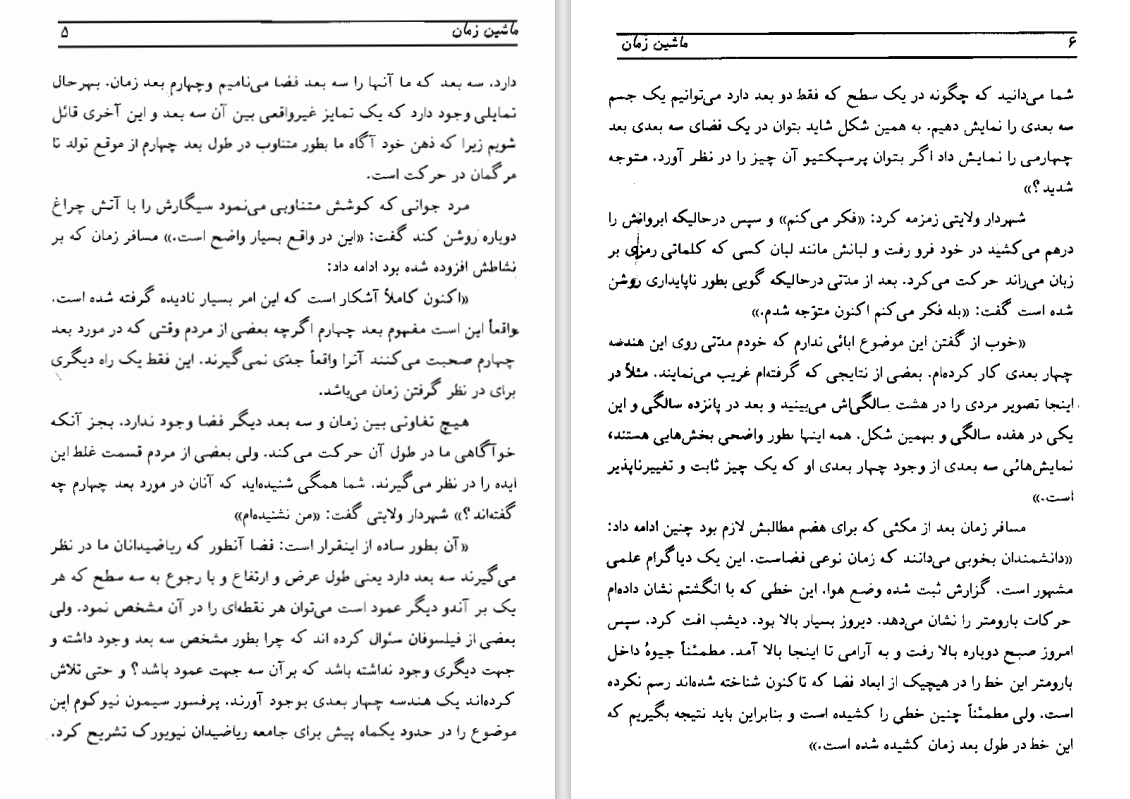 ماشین زمان ۵
دارد. سه بعد که ما آنها را سه بعد فضا می‌نامیم وچهارم بعد زمان. بهرحال
تمایلی وجود دارد که یک تمایز غیرواقعی بین آن سه بعد و این آخری قائل
شویم زیرا که ذهن خود آگاه ما بطور متناوب در طول بعد چهارم از موقع تولد تا
مرگمان در حرکت است.
مرد جوانی که کوشش متناوبی می‌نمود سیگارش را با آتش چراغ
دوباره روشن کند گفت: «این در واقع بسیار واضح است.» مسافر زمان که بر
نشاطش افزوده شده بود ادامه داد:
«اکنون کاملاً آشکار است که این امر بسیار نادیده گرفته شده است.
واقعاً این است مفهوم بعد چهارم اگرچه بعضی از مردم وقتی که در مورد بعد
چهارم صحبت می‌کنند آنرا واقعاً جدّی نمی‌گیرند. این فقط یک راه دیگری
برای در نظر گرفتن زمان می‌باشد.
هیچ تفاوتی بین زمان و سه بعد دیگر فضا وجود ندارد. بجز آنکه
خوآگاهی ما در طول آن حرکت می‌کند. ولی بعضی از مردم قسمت غلط این
ایده را در نظر می‌گیرند. شما همگی شنیده‌اید که آنان در مورد بعد چهارم چه
گفته‌اند؟» شهردار ولایتی گفت: «من نشنیده‌ام»
«آن بطور ساده از اینقرار است: فضا آنطور که ریاضیدانان ما در نظر
می‌گیرند سه بعد دارد یعنی طول عرض و ارتفاع و با رجوع به سه سطح که هر
یک بر آندو دیگر عمود است می‌توان هر نقطه‌ای را در آن مشخص نمود. ولی
بعضی از فیلسوفان سئوال کرده اند که چرا بطور مشخص سه بعد وجود داشته و
جهت دیگری وجود نداشته باشد که برآن سه جهت عمود باشد؟ و حتی تلاش
کرده‌اند یک هندسه چهار بعدی بوجود آورند. پرفسور سیمون نیوکوم این
موضوع را در حدود یکماه پیش برای جامعه ریاضیدان نیویورک تشریح کرد.
۶ ماشین زمان
شما می‌دانید که چگونه در یک سطح که فقط دو بعد دارد می‌توانیم یک جسم
سه بعدی را نمایش دهیم. به همین شکل شاید بتوان در یک فضای سه بعدی بعد
چهارمی را نمایش داد اگر بتوان پرسپکتیو آن چیز را در نظر آورد. متوجه
شدید؟»
شهردار ولایتی زمزمه کرد: «فکر می‌کنم» و سپس درحالیکه ابروانش را
درهم می‌کشید در خود فرو رفت و لبانش مانند لبان کسی که کلماتی رمزی بر
زبان می‌راند حرکت می‌کرد. بعد از مدّتی درحالیکه گویی بطور ناپایداری روشن
شده است گفت: «بله فکر می‌کنم اکنون متوّجه شدم.»
«خوب از گفتن این موضوع ابائی ندارم که خودم مدّتی روی این هندسه
چهار بعدی کار کرده‌ام. بعضی از نتایجی که گرفته‌ام غریب می‌نمایند. مثلاً در
اینجا تصویر مردی را در هشت سالگی‌اش می‌بینید و بعد در پانزده سالگی و این
یکی در هفده سالگی و بهمین شکل. همه اینها بطور واضحی بخش‌هایی هستند،
نمایش‌هائی سه بعدی از وجود چهار بعدی او که یک چیز ثابت و تغییرناپذیر
است.»
مسافر زمان بعد از مکثی که برای هضم مطالبش لازم بود چنین ادامه داد:
«دانشمندان بخوبی می‌دانند که زمان نوعی فضاست. این یک دیاگرام علمی
مشهور است. گزارش ثبت شده وضع هوا. این خطی که با انگشتم نشان داده‌ام
حرکات بارومتر را نشان می‌دهد. دیروز بسیار بالا بود. دیشب افت کرد. سپس
امروز صبح دوباره بالا رفت و به آرامی تا اینجا بالا آمد. مطمئناً جیوهٔ داخل
بارومتر این خط را در هیچیک از ابعاد فضا که تاکنون شناخته شده‌اند رسم نکرده
است. ولی مطمئناً چنین خطی را کشیده است و بنابراین باید نتیجه بگیریم که
این خط در طول بعد زمان کشیده شده است.»